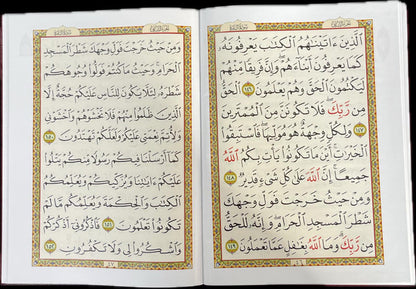 ٱلَّذِينَ ءَاتَيْنَٰهُمُ ٱلْكِتَٰبَ يَعْرِفُونَهُۥ
كَمَا يَعْرِفُونَ أَبْنَآءَهُمْ ۖ وَإِنَّ فَرِيقًا مِّنْهُمْ
لَيَكْتُمُونَ ٱلْحَقَّ وَهُمْ يَعْلَمُونَ ١٤٦ ٱلْحَقُّ
مِن رَّبِّكَ ۖ فَلَا تَكُونَنَّ مِنَ ٱلْمُمْتَرِينَ
١٤٧ وَلِكُلٍّ وِجْهَةٌ هُوَ مُوَلِّيهَا ۖ فَٱسْتَبِقُوا۟
ٱلْخَيْرَٰتِ ۚ أَيْنَ مَا تَكُونُوا۟ يَأْتِ بِكُمُ ٱللَّهُ
جَمِيعًا ۚ إِنَّ ٱللَّهَ عَلَىٰ كُلِّ شَىْءٍ قَدِيرٌ ١٤٨
وَمِنْ حَيْثُ خَرَجْتَ فَوَلِّ وَجْهَكَ
شَطْرَ ٱلْمَسْجِدِ ٱلْحَرَامِ ۖ وَإِنَّهُۥ لَلْحَقُّ
مِن رَّبِّكَ ۗ وَمَا ٱللَّهُ بِغَٰفِلٍ عَمَّا تَعْمَلُونَ ١٤٩
وَمِنْ حَيْثُ خَرَجْتَ فَوَلِّ وَجْهَكَ شَطْرَ ٱلْمَسْجِدِ
ٱلْحَرَامِ ۚ وَحَيْثُ مَا كُنتُمْ فَوَلُّوا۟ وُجُوهَكُمْ
شَطْرَهُۥ لِئَلَّا يَكُونَ لِلنَّاسِ عَلَيْكُمْ حُجَّةٌ إِلَّا
ٱلَّذِينَ ظَلَمُوا۟ مِنْهُمْ فَلَا تَخْشَوْهُمْ وَٱخْشَوْنِى
وَلِأُتِمَّ نِعْمَتِى عَلَيْكُمْ وَلَعَلَّكُمْ تَهْتَدُونَ ١٥٠
كَمَآ أَرْسَلْنَا فِيكُمْ رَسُولًا مِّنكُمْ يَتْلُوا۟
عَلَيْكُمْ ءَايَٰتِنَا وَيُزَكِّيكُمْ وَيُعَلِّمُكُمُ
ٱلْكِتَٰبَ وَٱلْحِكْمَةَ وَيُعَلِّمُكُم مَّا لَمْ
تَكُونُوا۟ تَعْلَمُونَ ١٥١ فَٱذْكُرُونِىٓ أَذْكُرْكُمْ
وَٱشْكُرُوا۟ لِى وَلَا تَكْفُرُونِ ١٥٢